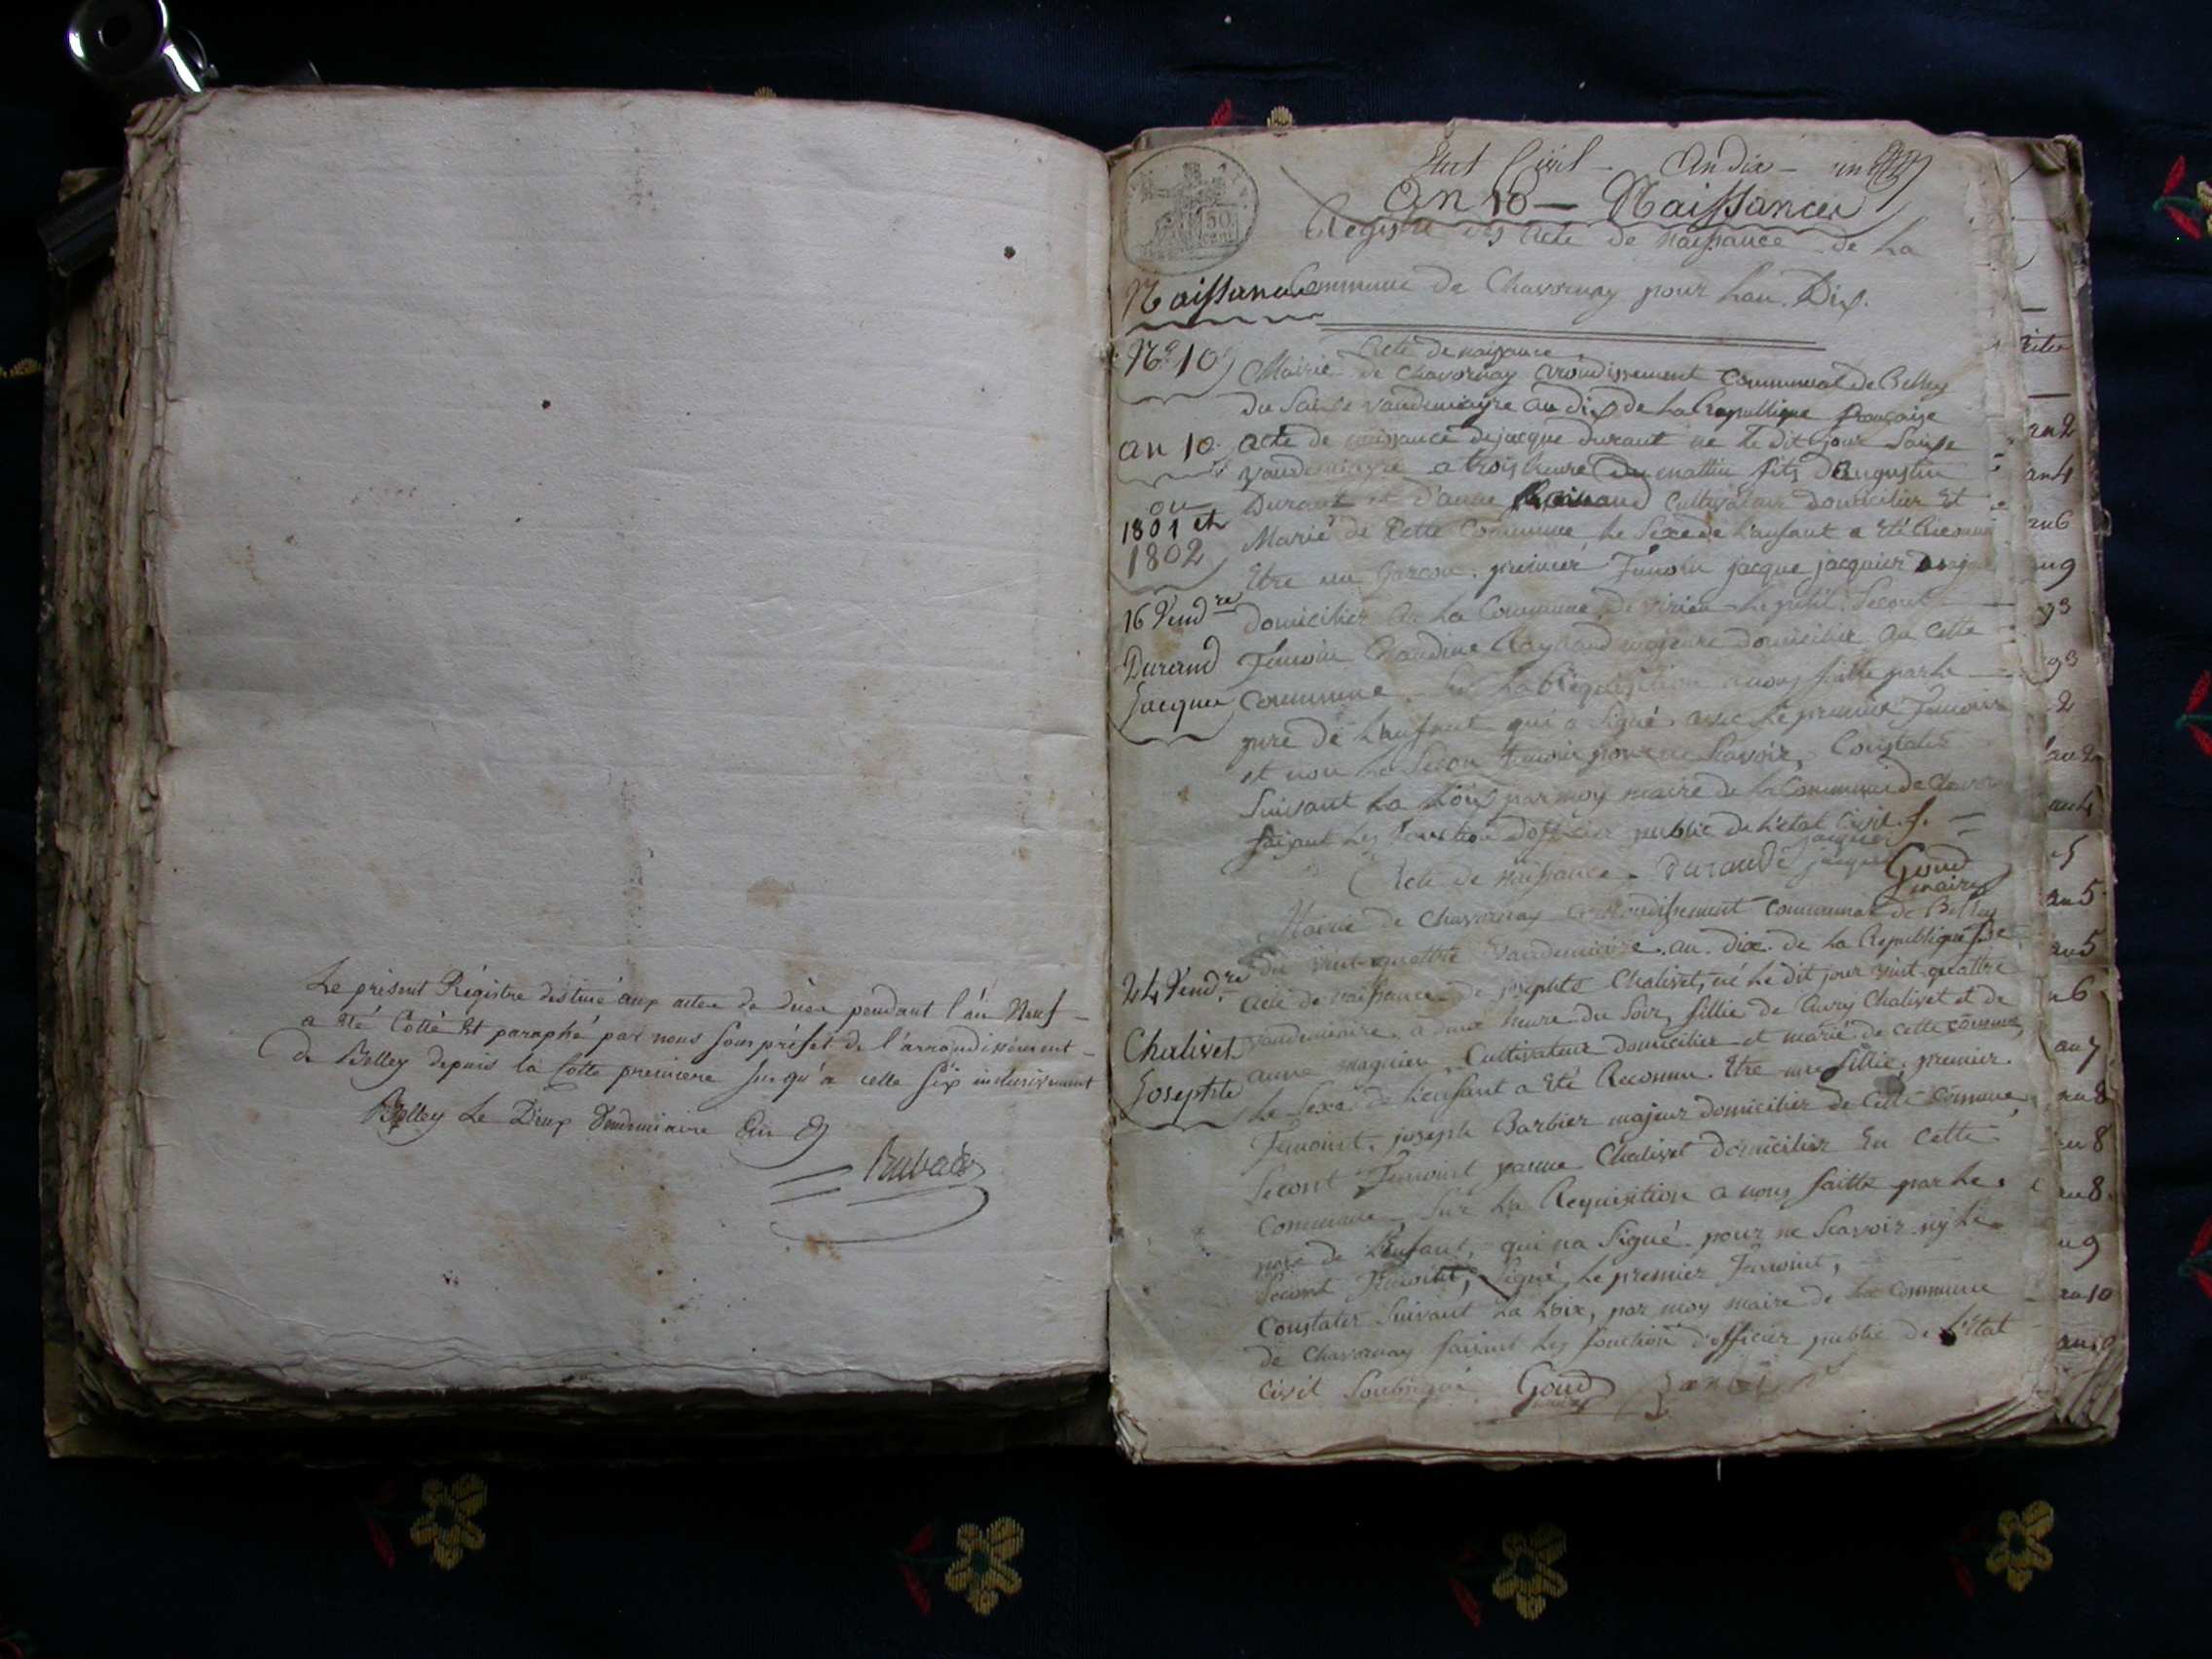 Le présent Régistre destiné aux actes de déces pendant l'án Neuf
a été Cotté et paraphé par nous sous préfet de l'arrondissement
de Belley depuis la Cotte premiere jusqu'a celle six inclusivement
Belley Le Deux Vendemiaire An 9
Etat Civil - An dix -
An 10 - Naissances
Registre des acte de naissance de La
Naissances
Commune de Chavornay pour Lan Dix.
Nº 10
an 10
ou
1801 et
1802
16 Vend.re
Durand
Jacques
acte de naissance
Mairie de Chavornay arondissement communal de Belley
du Saize vandemiayre an dix de La Republique françaize
acte de naissance de jacque durant né le dit jour Saize
vandemiayre a trois heure du mattin fils d'augustin
Durant et d'anne cultivateur domicilier et
Marié de cette commune le sexe de l'anfant a été Reconnu
Etre un garcon. premier Temoin jacque jacquier
domicilier de La Commune de virieu le petit. Secont
Temoin Claudine Raynaud majeure domicilier en cette
commune. Sur La Requisition a nous faitte par le
pere de L'anfant qui a Signé avec Le premier Temoin
et non Le Secon temoin pour ne Scavoir, Constater
Suivant La Loix par moy maire de la Commune de
faisant Les fonction d'officier public de L'etat Civil.
Durand jacquier
Goud
maire
Acte de naissance
24 Vend.re
Chalivet
Josephte
Mairie de Chavornay arrondissement communal de Belley
du vint-quattre vandemiaire. an. dix. de la Republique
acte de naissance de josephte Chalivet, né Le dit jour vint-quattre
vandemiaire. a deux heure du Soir, fillie de Chalivet et de
anne Cultivateur domicilier et marié de cette cōmune,
Le Sexe de L'enfant a été Reconnu. Etre une fillie. premier
Temoint. joseph Barbier majeur domicilier de cette cōmune,
Secont Temoint Chalivet domicilier En Cette
Commune Sur La Requisition a nous faitte par Le
pere de L'enfant, qui na Signé pour ne Scavoir ny Le
Secont Temoint, Signé, Le premier Temoint,
Constater Suivant La Loix, par moy maire de La Commune
de Chavornay faisant Les fonction d'officier public de L'Etat
Civil Goud
an 2
an 4
an 6
an 9
93
93
2
an 2
an 4
5
an 5
an 5
6
an 7
an 8
an 8
an 8
9
an 10